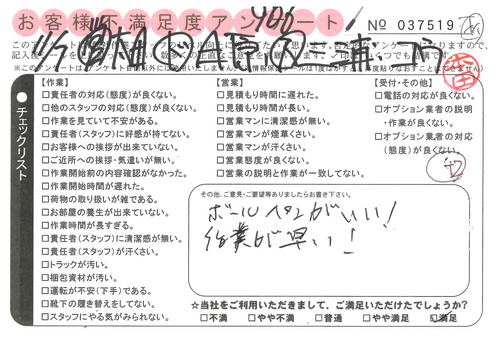 お客様不満足度アンケート!
No 037519
チェックリスト
【作業】
□責任者の対応(態度)が良くない。
□他のスタッフの対応(態度)が良くない。
□作業を見ていて不安がある。
□責任者(スタッフ)に好感が持てない。
□お客様への挨拶が出来ていない。
□ご近所への挨拶・気遣いが無い。
□作業開始前の内容確認がなかった。
□作業開始時間が遅れた。
□荷物の取り扱いが雑である。
□お部屋の養生が出来ていない。
□作業時間が長すぎる。
□責任者(スタッフ)に清潔感が無い。
□責任者(スタッフ)が汗くさい。
□トラックが汚い。
□梱包資材が汚い。
□運転が不安(下手)である。
□靴下の履き替えをしてない。
□スタッフにやる気がみられない。
【営業】
□見積もり時間に遅れた。
□見積もり時間が長い。
□営業マンに清潔感が無い。
□営業マンが煙草くさい。
□営業マンが汗くさい。
□営業態度が良くない。
□営業の説明と作業が一致してない。
【受付・その他】
□電話の対応が良くない。
□オプション業者の説明
・作業が良くない。
□オプション業者の対応
(態度)が良くない。
その他、ご意見・ご要望等ありましたらお書き下さい。
ボールペンがいい!
作業が早い!
☆当社をご利用いただきまして、ご満足いただけたでしょうか?
□不満 □やや不満 □普通 □やや満足 ☑満足